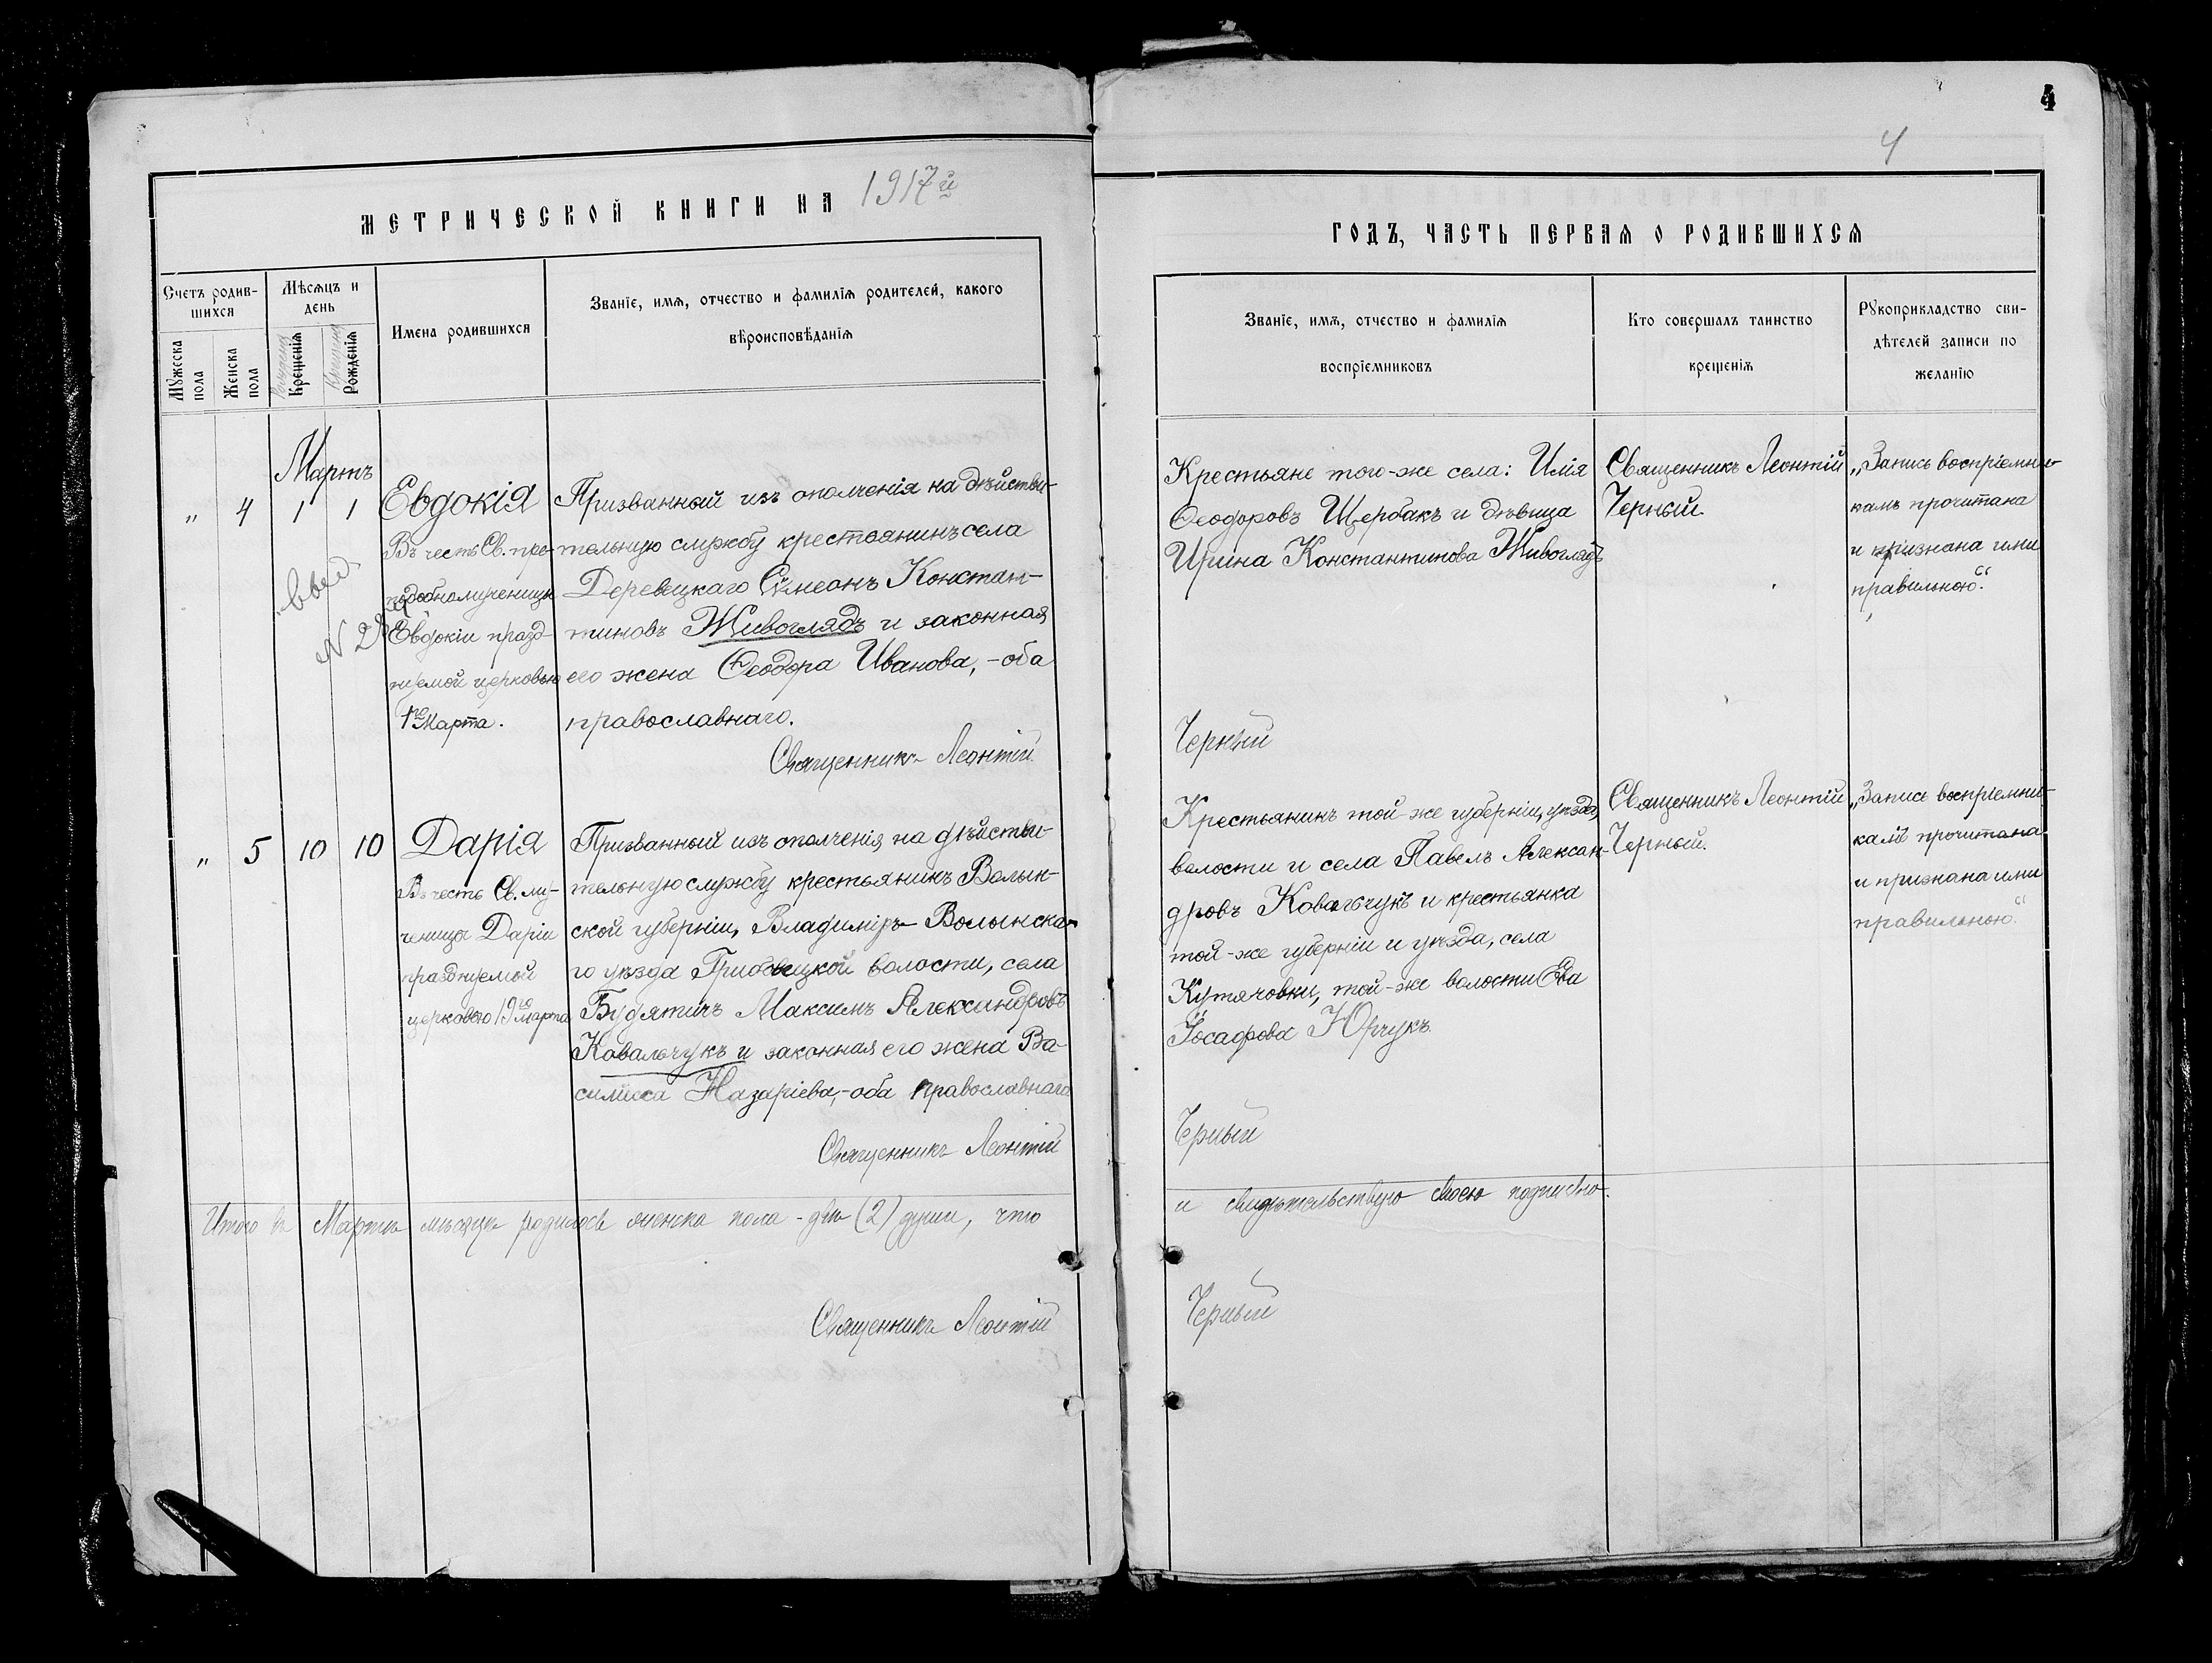 4
4
МЕТРИЧЕСКОЙ КНИГИ НА 1917й
ГОДЪ, ЧАСТЬ ПЕРВАЯ О РОДИВШИХСЯ
Счетъ родив-
шихся
Мужеска
пола
Женска
пола
Мѣсяцъ и
день
Крещенія
Рожденія
Имена родившихся
Званіе, имя, отчество и фамилія родителей, какого
вѣроисповѣданія
Званіе, имя, отчество и фамилія
воспріемниковъ
Кто совершалъ таинство
крещенія
Рукоприкладство сви-
дѣтелей записи по
желанію
Мартъ
" 4 1 1
Евдокія
Въ честь Св. пре-
подобномученицы
Евдокіи празд-
нуемой церковью
1го Марта.
Призванный изъ ополченія на дѣйстви-
тельную службу крестьянинъ села
Деревецкаго Сѵмеонъ Констан-
тиновъ Живоглядъ и законная
его жена Ѳеодора Иванова, - оба
православнаго.
Священникъ Леонтій
Крестьяне того-же села: Илія
Ѳеодоровъ Щербакъ и дѣвица
Ирина Константинова Живоглядъ
Черный
Священникъ Леонтій
Черный.
„Запись воспріемни-
камъ прочитана
и признана ими
правильною."
" 5 10 10
Дарія
Въ честь Св. му-
ченицы Даріи
празднуемой
церковью 19го марта
Призванный изъ ополченія на дѣйстви-
тельную службу крестьянинъ Волын-
ской губерніи, Владиміръ-Волынска-
го уѣзда Грибовецкой волости, села
Будятичъ Максимъ Александровъ
Ковальчукъ и законная его жена Ва-
силисса Назаріева, - оба православнаго
Священникъ Леонтій
Крестьянинъ той-же губерніи, уѣзда,
волости и села Павелъ Алексан-
дровъ Ковальчукъ и крестьянка
той-же губерніи и уѣзда, села
Кутячовки, той-же волости Ева
Іосафова Юрчукъ.
Черный
Священникъ Леонтій
Черный.
„Запись воспріемни-
камъ прочитана
и признана ими
правильною."
Итого въ Мартѣ мѣсяцѣ родилось женска пола - двѣ (2) души, что
и свидѣтельствую своею подписью.
Священникъ Леонтій
Черный